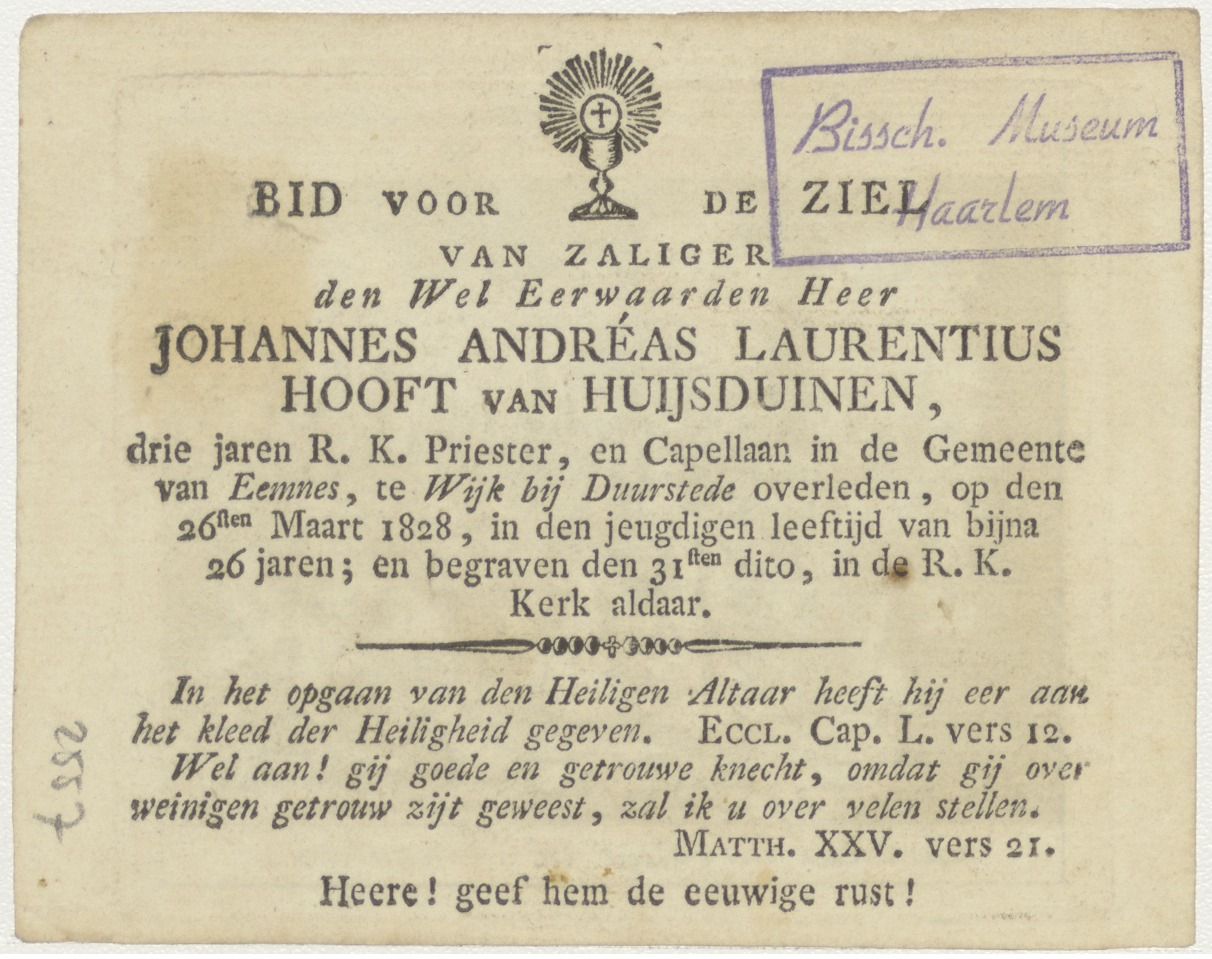 Bissch. Museum
Haarlem
BID VOOR DE ZIEL
VAN ZALIGER
den Wel Eerwaarden Heer
JOHANNES ANDRÉAS LAURENTIUS
HOOFT VAN HUIJSDUINEN,
drie jaren R. K. Priester, en Capellaan in de Gemeente
van Eemnes, te Wijk bij Duurstede overleden, op den
26sten Maart 1828, in den jeugdigen leeftijd van bijna
26 jaren; en begraven den 31sten dito, in de R. K.
Kerk aldaar.
In het opgaan van den Heiligen Altaar heeft hij eer aan
het kleed der Heiligheid gegeven. ECCL. Cap. L. vers 12.
Wel aan! gij goede en getrouwe knecht, omdat gij over
weinigen getrouw zijt geweest, zal ik u over velen stellen.
MATTH. XXV. vers 21.
Heere! geef hem de eeuwige rust!